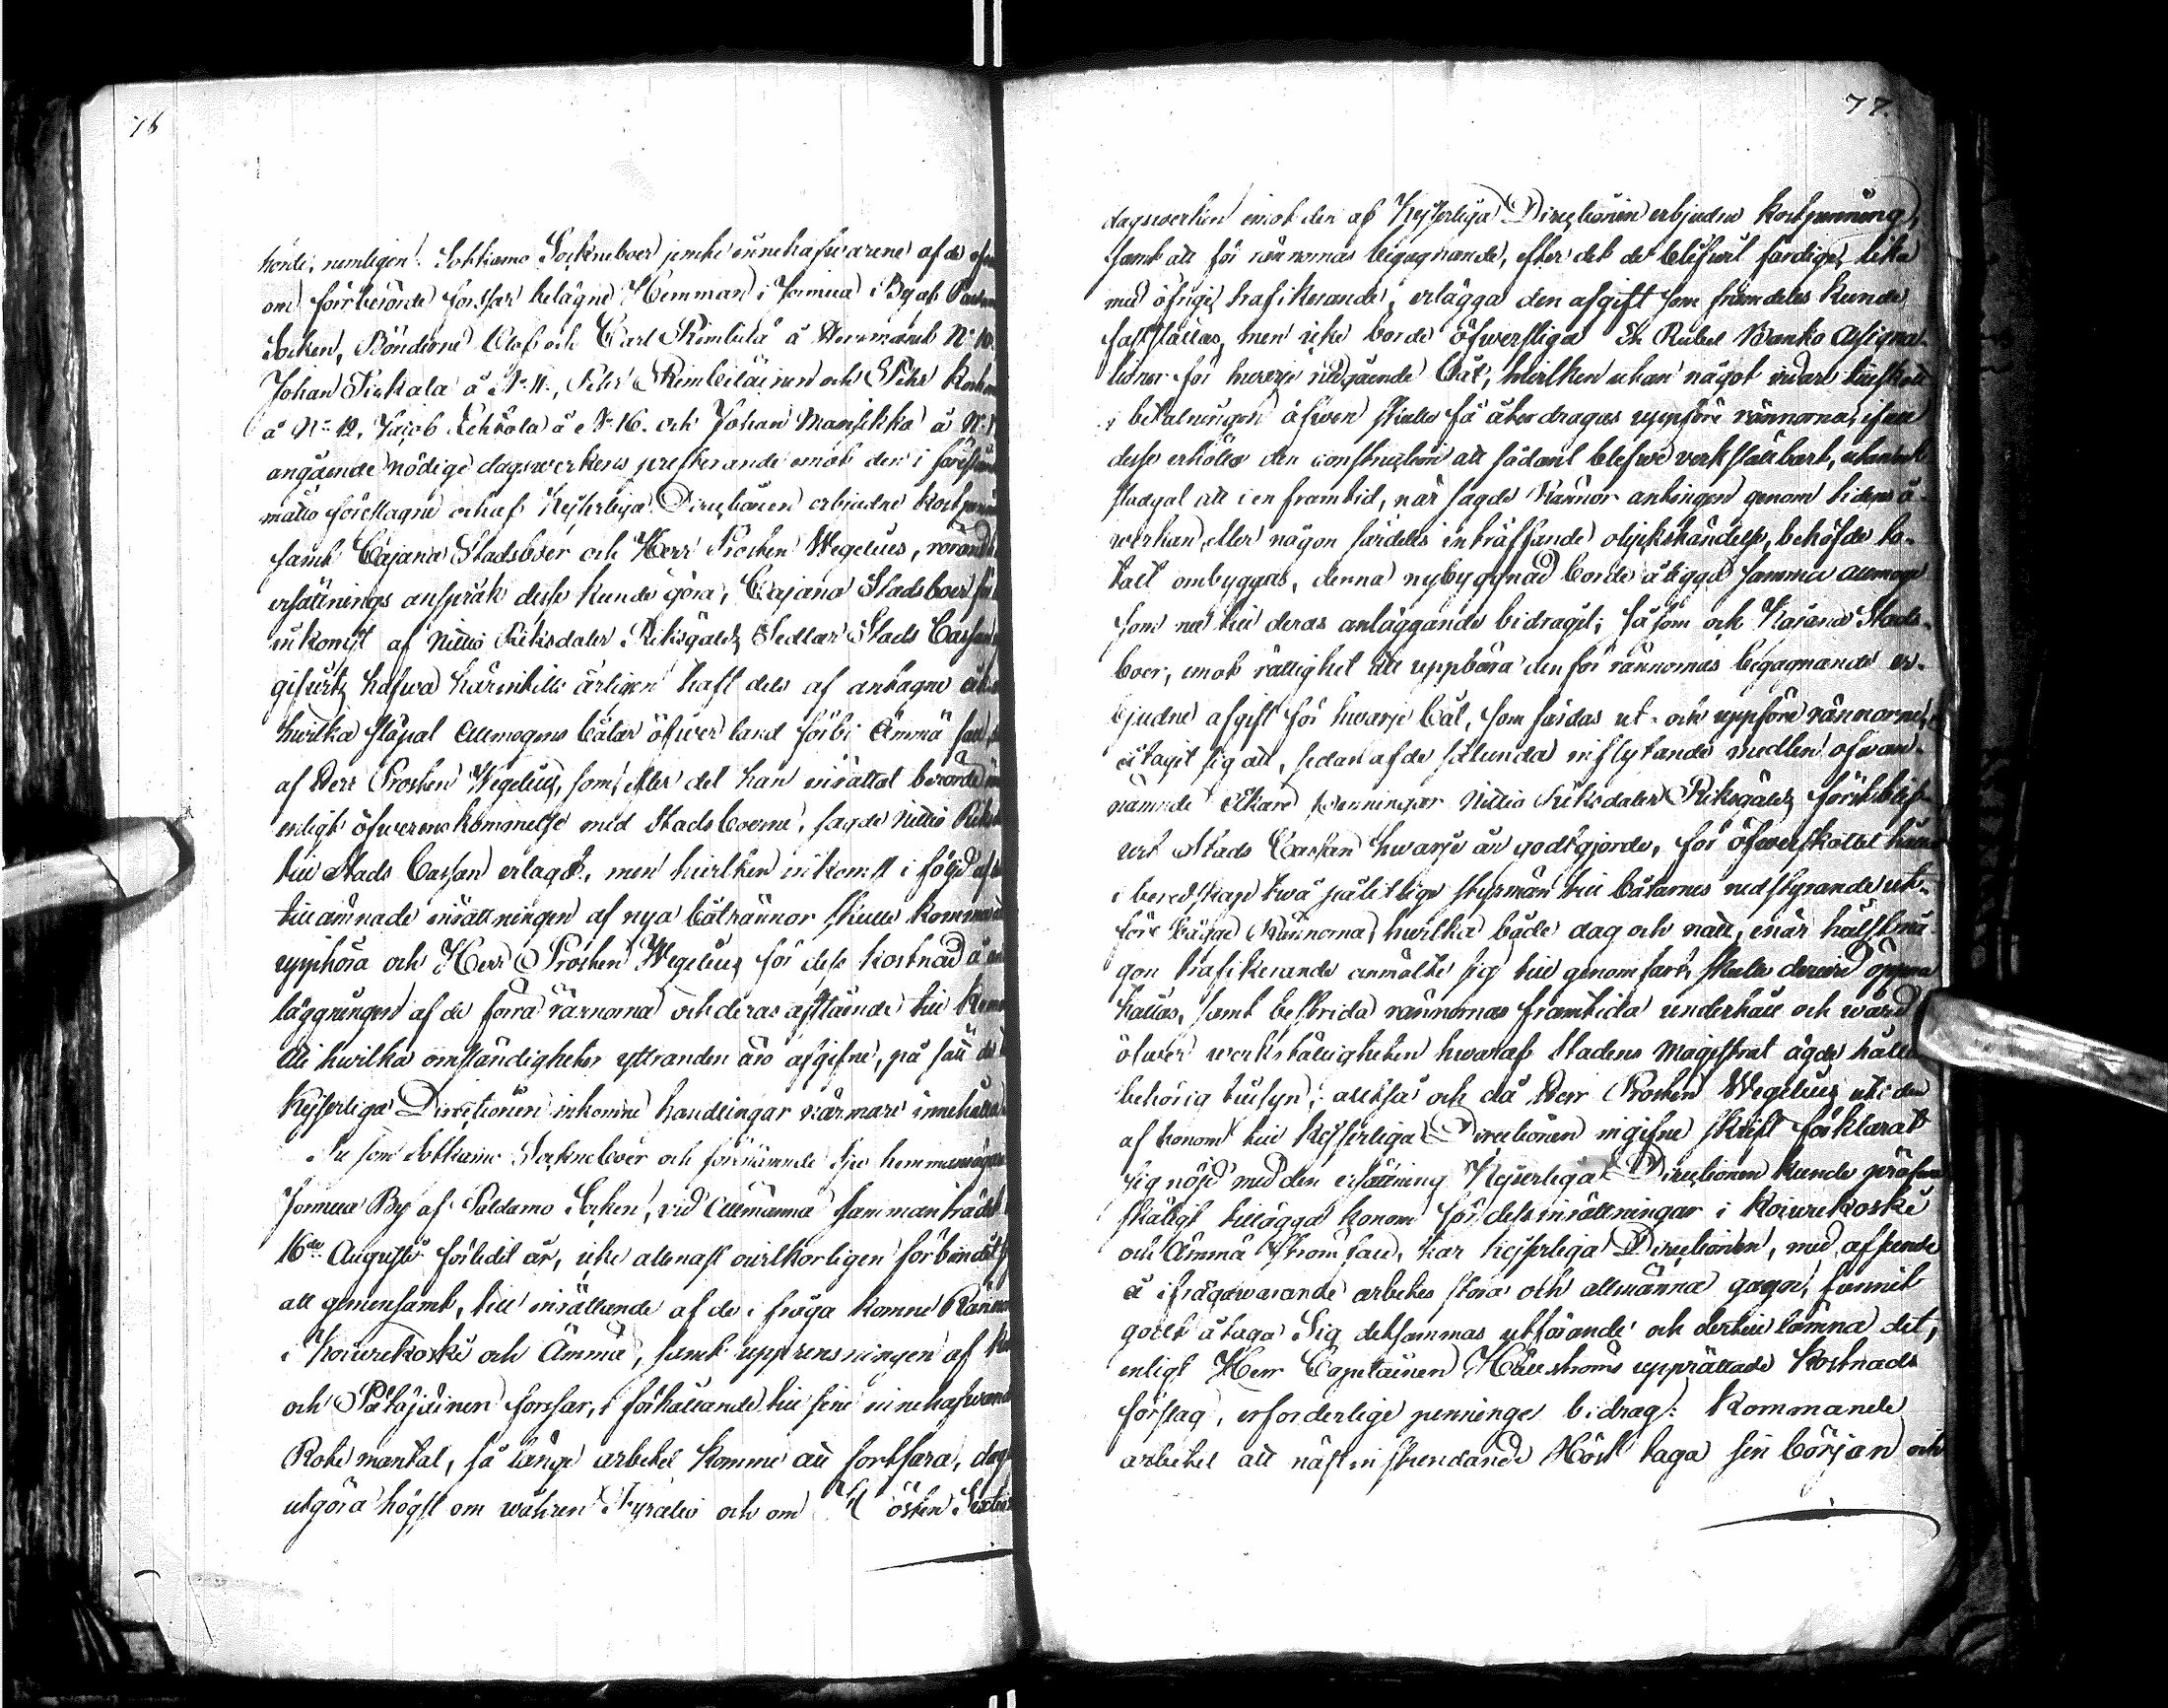 76
hörde, nemligen: Sotkamo Sockneboer jemte innehafvarene af de
om förrberörde forssar belägne Hemman i Jormua By af
Socken, Bönderne Olof och Carl Kimbilä å Hemmanet N:o 10.
Johan Tickala å N:o 11., Petter Kimbiläinen och Petter
å N:o 12, Jacob Lehtola å N:o 16. och Johan Mansikka å N:o
angående nödige dagsverkens presterande emot den i
måtto föreslagne och af Kejserliga Directionen erbjudne
samt Cajana Stadsboer och Herr Prosten Wegelius, rörande
ersättnings anspråk desse kunde göra, Cajana Stadsboer
inkomst af Nittio Riksdaler Riksgälds Sedlar Stads Cassan
gifvits hafwa härintills årligen haft dels af antagne
hwilka släpat Allmogens båtar öfwer land förbi Ämmä
af Herr Prosten Wegelius, som, efter det han inrättat berörde
enligt öfwerenskommelse med Stadsboerne, sagde Nittio
till Stads Cassan erlagt, men hwilken inkomst i följd af
tillämnade inrättningen af nya båtrännor skulle komma
upphöra och Herr Prosten Wegelius för dess kostnad å
läggningen af de förra rännorna och deras afstående till
Alli hwilka omständigheter yttranden äro afgifne, på sätt de
Kejserliga Directionen inkomne handlingar närmare innehålla
Su som Sotkamo Socknboer och förenämnde Sju hemmansägare
Jormua By af Paldamo Socken, vid Allmänna sammanträdet
16de Augusti förledit år, icke allenast ovilkorligen förbundit
att gemensamt, till inrättande af de i fråga komne Rännor
i Koiwukoski och Ämmä, samt upprensningen af
och Pätäjäinen forssar, i förhållande till sine innehafwande
Rote mantal, så länge arbetet komme att fortfara,
utgöra högst om wåhren Fyratio och om Hösten
77.
dagswerken emot den af Kejserliga Directionen erbjudne kostpenning,
samt att för rännornas begagnande, efter det de blifwit färdige, lika
med öfrige trafikerande, erlägga den afgift som framdeles kunde
fastställas, men icke borde öfwerstiga En Rubel Banko Assigna-
tioner för hwarje nedgående båt, hwilken utan något widare tillskott
i betalningen äfwen skulle få återdragas uppföre rännorna, ifall
desse erhöllo den construction att sådant blefwe verkställbart,
stadgat att i en framtid, när sagde Rännor antingen genom tidens å-
werkan, eller någon särdeles inträffande olyckshändelse, behöfde to-
talt ombyggas, denna nybyggnad borde åligga samma allmoge
som nu till deras anläggande bidragit; så som och Kajana Stads-
boer, emot rättighet att uppbära den för rännornas begagnande er-
bjudne afgift för hwarje båt, som färdas ut- och uppföre rännorne,
åtagit sig att, sedan af de sålunda inflytande medlen ofwan-
nämnde Åkare penningar Nittio Riksdaler Riksgälds förstblif-
wit Stads Cassan hwarje år godtgjorde, för öfwerskottet hålla
i beredskap twå pålitlige styrmän till båtarnes nedstyrande ut-
före bägge Rännorna, hwilka både dag och natt, enär hälst nå-
gon trafikerande anmälte sig till genomfart, skulle derwid öppna
hållas, samt bestrida rännornas framtida underhåll och wård
öfwer werkställigheten hwaraf Stadens Magistrat ägde hålla
behörig tillsyn; alltså och då Herr Prosten Wegelius uti den
af honom till Kejserliga Directionen ingifne skrift förklarat
sig nöjd med den ersättning Kejserliga Directionen kunde pröfwa
skäligt tillägga honom för dess inrättningar i Koiwukoski
och Ämmä ström fall, har Kejserliga Directionen, med afseende
å ifrågawarande arbetes stora och allmänna gagn, funnit
godt åtaga Sig detsammas utförande och dertill lämna det,
enligt Herr Capitainen Hällströms upprättade kostnads
förslag, erforderlige penninge bidrag: Kommande
arbetet att nästinstundande Höst taga sin början och